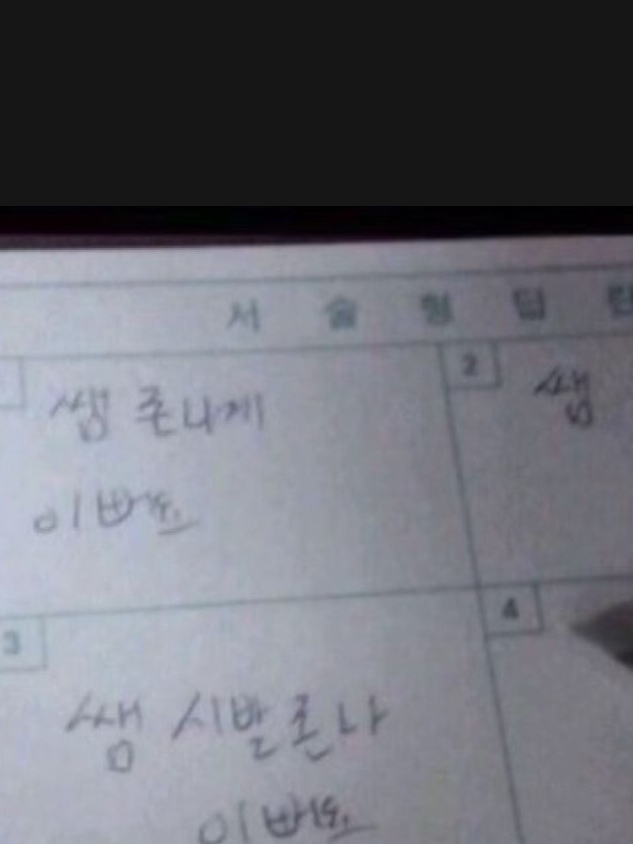 서 술 형 답 란
2
쌤 존나게
이뻐요
쌤
3
쌤 시발 존나
이뻐요
4